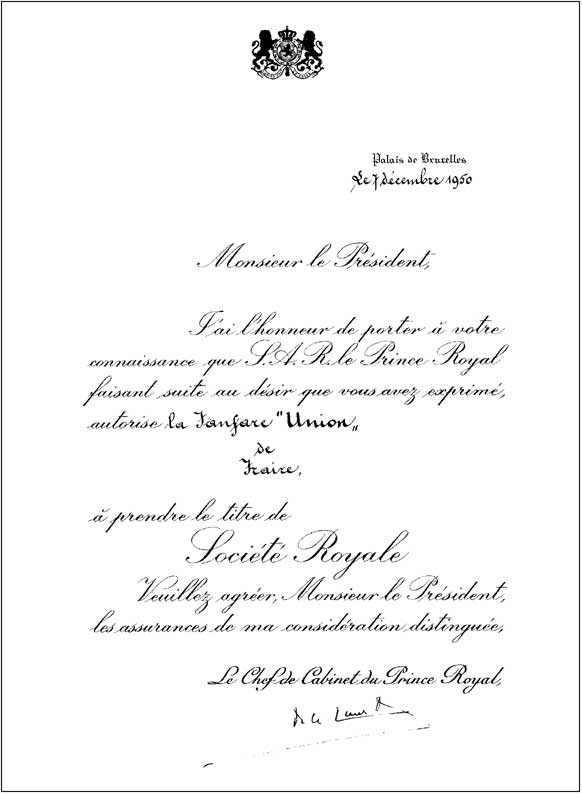 Palais de Bruxelles
Le 7 décembre 1950
Monsieur le Président,
J'ai l'honneur de porter à votre
connaissance que S.A.R. le Prince Royal
faisant suite au désir que vous avez exprimé,
autorise la Fanfare "Union"
de
Fraire,
à prendre le titre de
Société Royale
Veuillez agréer, Monsieur le Président,
les assurances de ma considération distinguée,
Le Chef de Cabinet du Prince Royal,